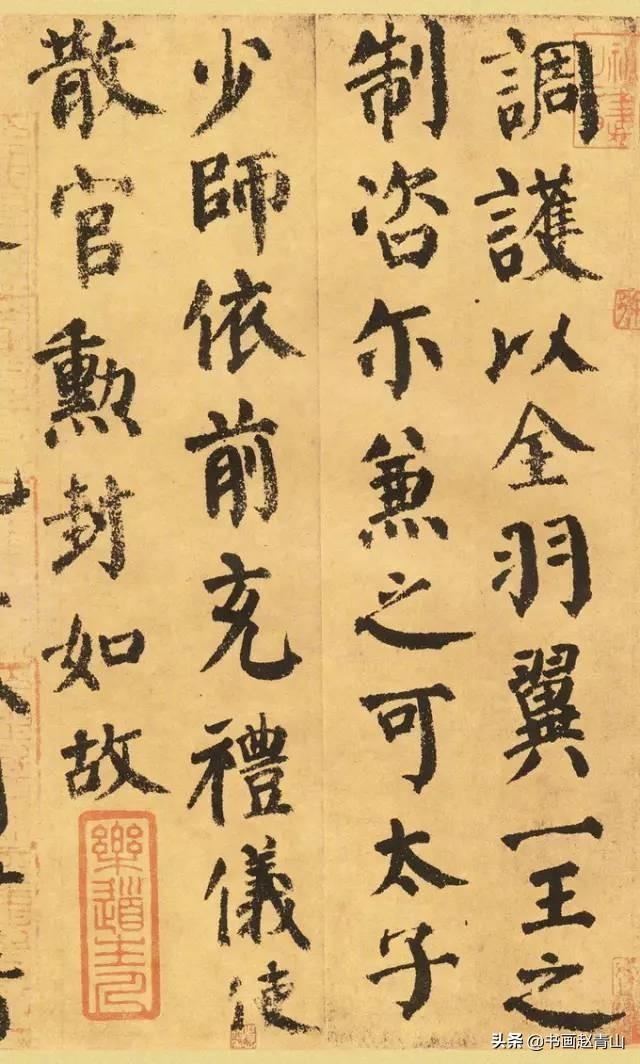 調護以全羽翼一王之
制咨尔兼之可太子
少師依前充禮儀使
散官勲封如故
樂道主人
头条 @书画赵青山